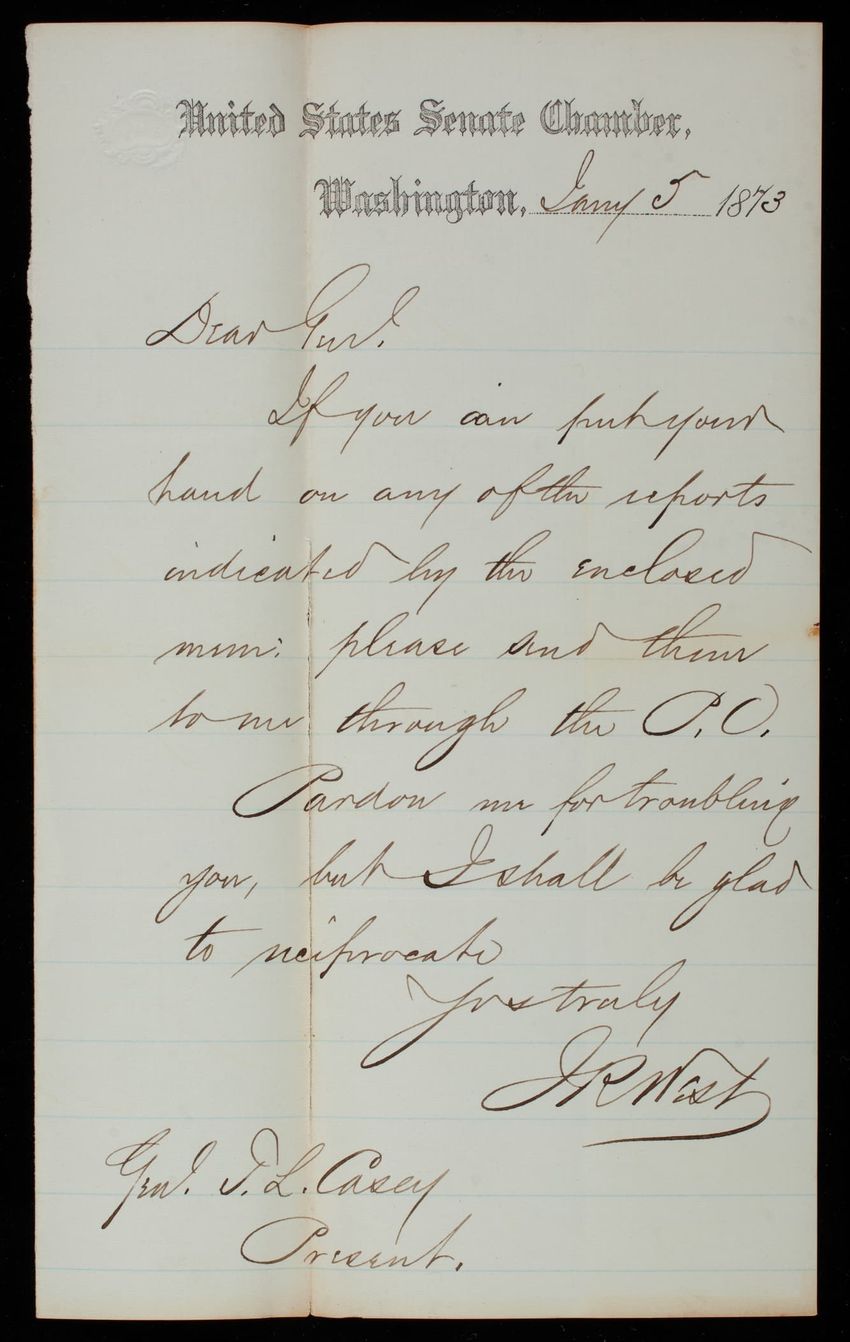 United States Senate Chamber,
Washington, Jany 5 1873
Dear Genl.
If you can put your
hand on any of the reports
indicated by the enclosed
mem: please send them
to me through the P.O.
Pardon me for troubling
you, but I shall be glad
to reciprocate
Yos truly
J R West
Genl. T. L. Casey
Present.